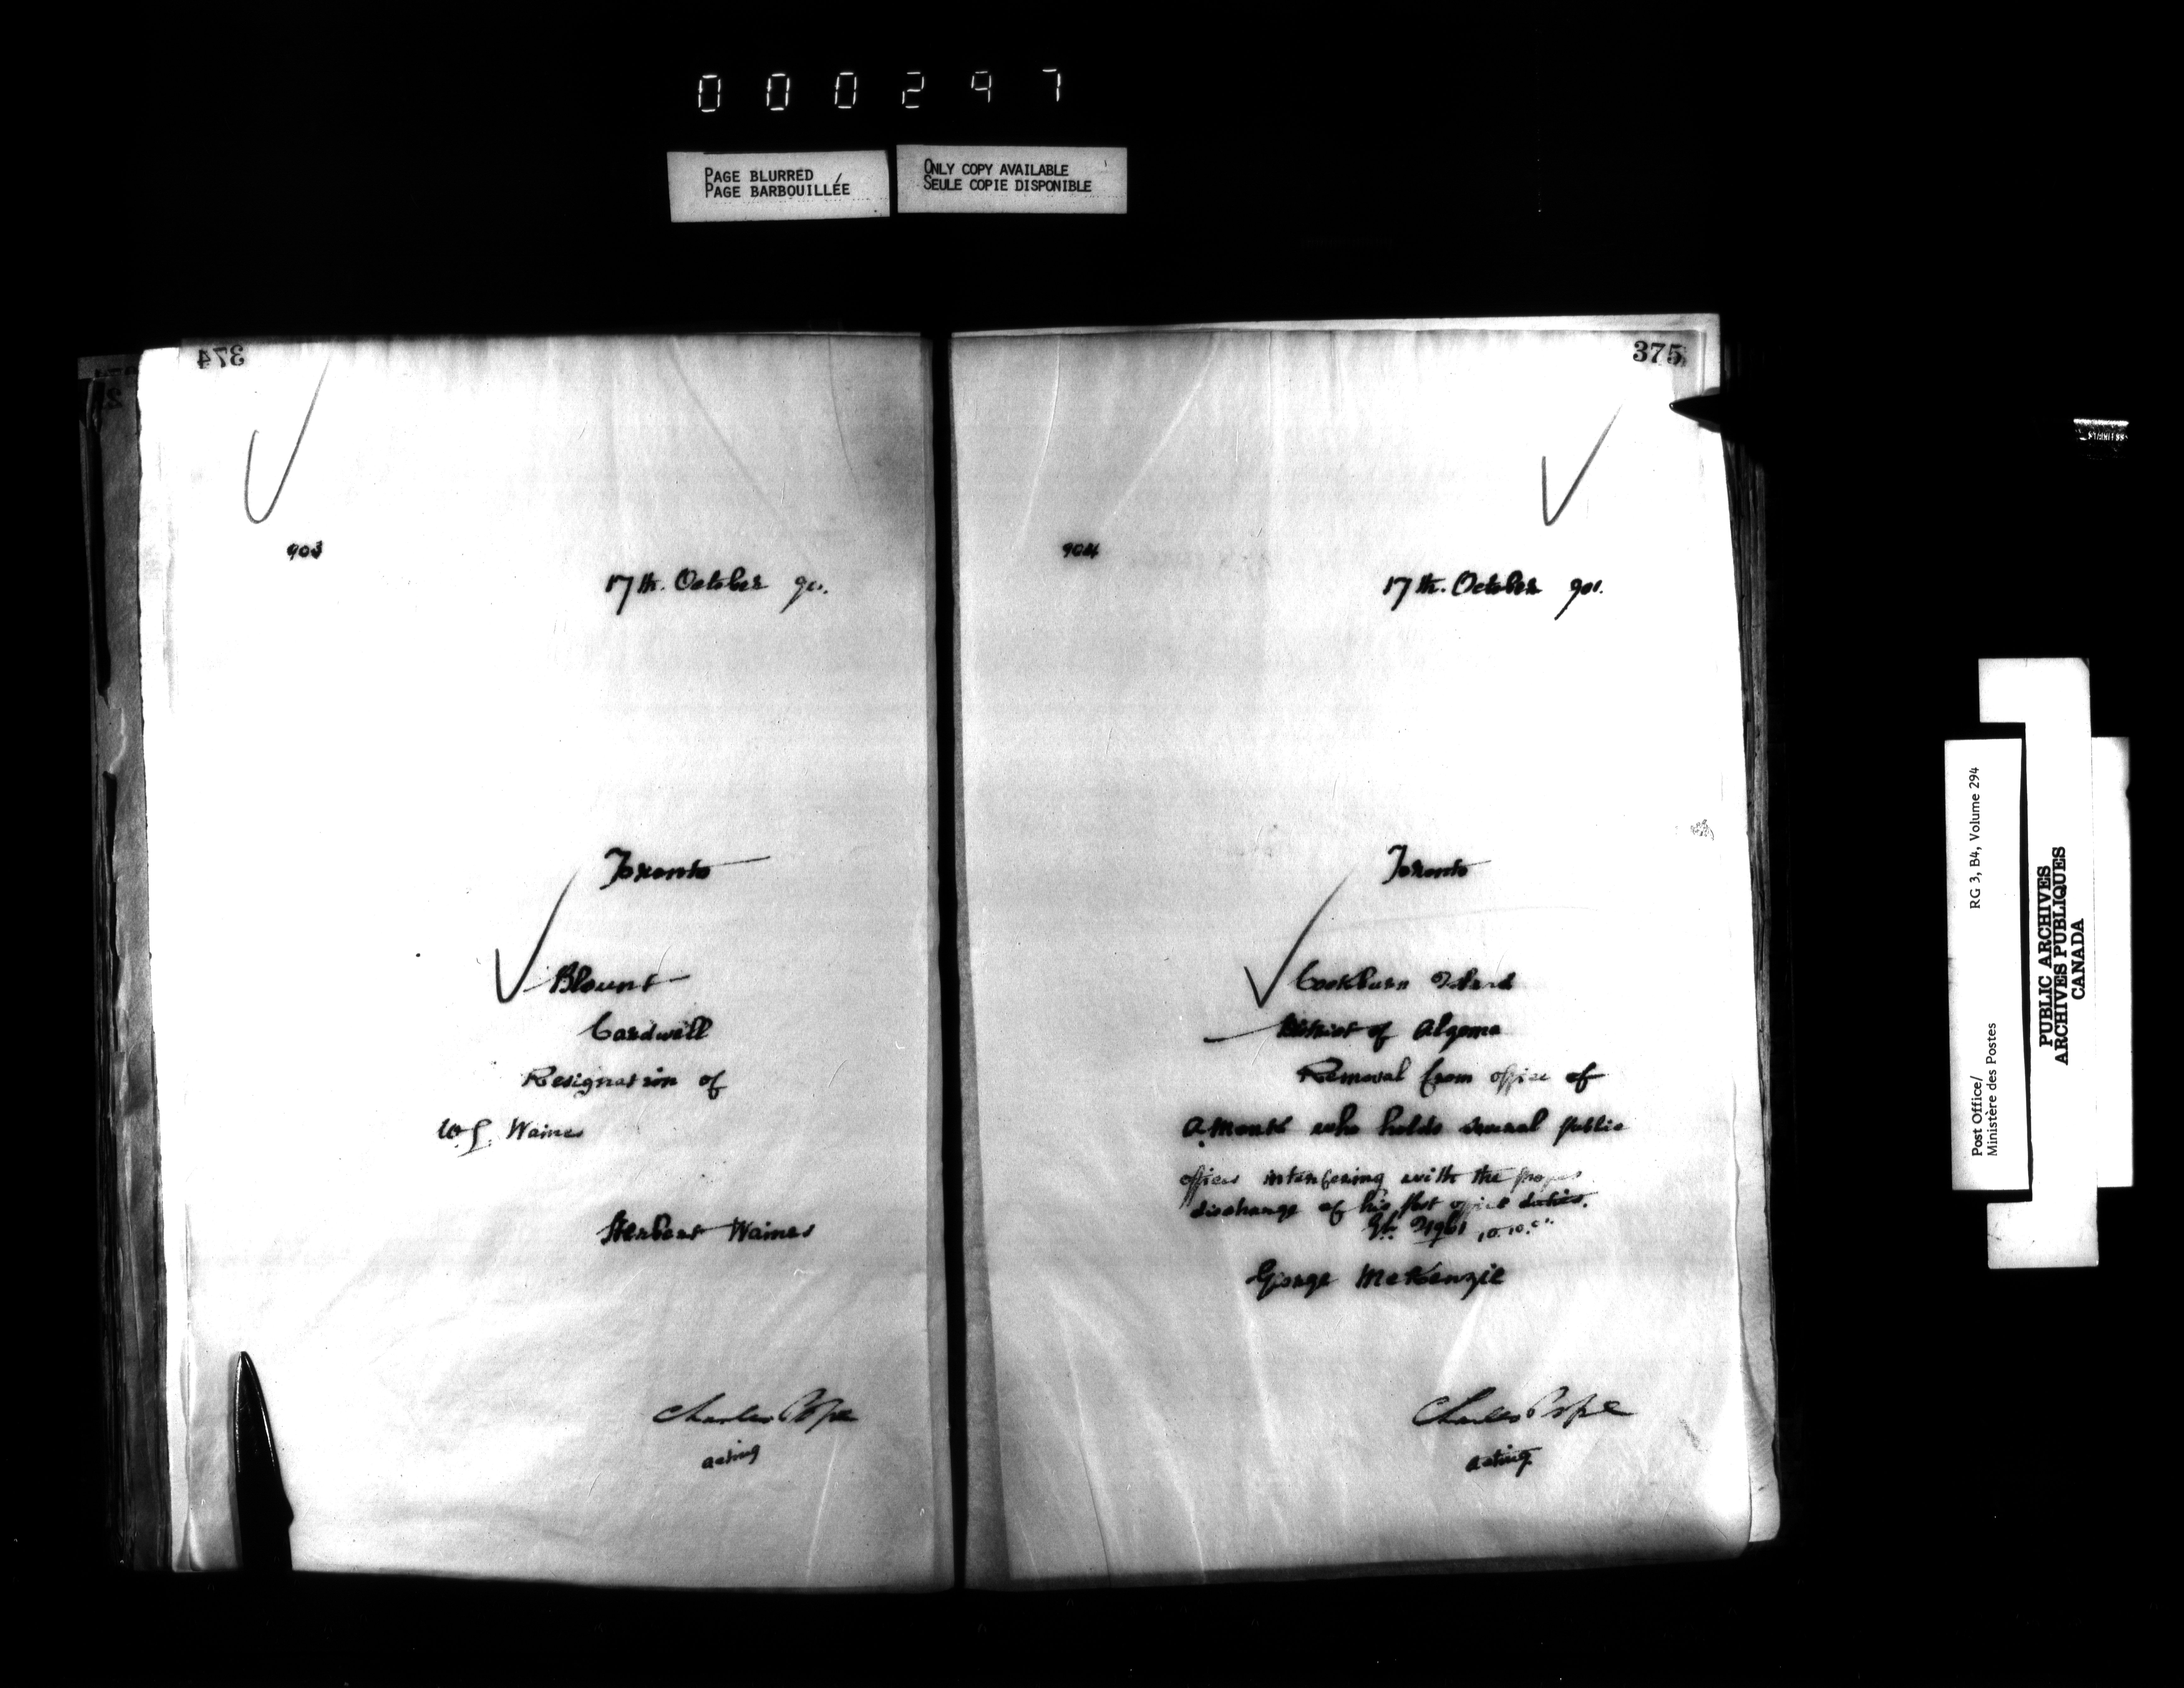 000297
PAGE BLURRED
PAGE BARBOUILLÉE
ONLY COPY AVAILABLE
SEULE COPIE DISPONIBLE
374
903
17th. October 901.
Toronto
Blount
Cardwell
Resignation of
Waines
Herbert Waines
Charles Pope
acting
375
904
17th. October 901.
Toronto
Cockburn Island
District of Algoma
Removal from office of
who holds several public
offices interfering with the proper
discharge of his post office duties.
George McKenzie
Charles Pope
acting
Post Office/
Ministère des Postes
RG 3, B4, Volume 294
PUBLIC ARCHIVES
ARCHIVES PUBLIQUES
CANADA